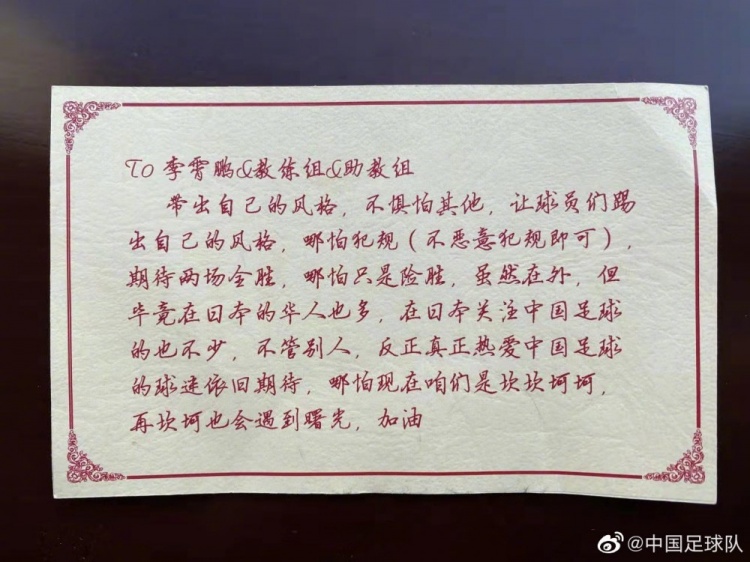 To 李霄鹏&教练组&助教组
带出自己的风格，不惧怕其他，让球员们踢
出自己的风格，哪怕犯规（不恶意犯规即可），
期待两场全胜，哪怕只是险胜，虽然在外，但
毕竟在日本的华人也多，在日本关注中国足球
的也不少，不管别人，反正真正热爱中国足球
的球迷依旧期待，哪怕现在咱们是坎坎坷坷，
再坎坷也会遇到曙光，加油
@中国足球队